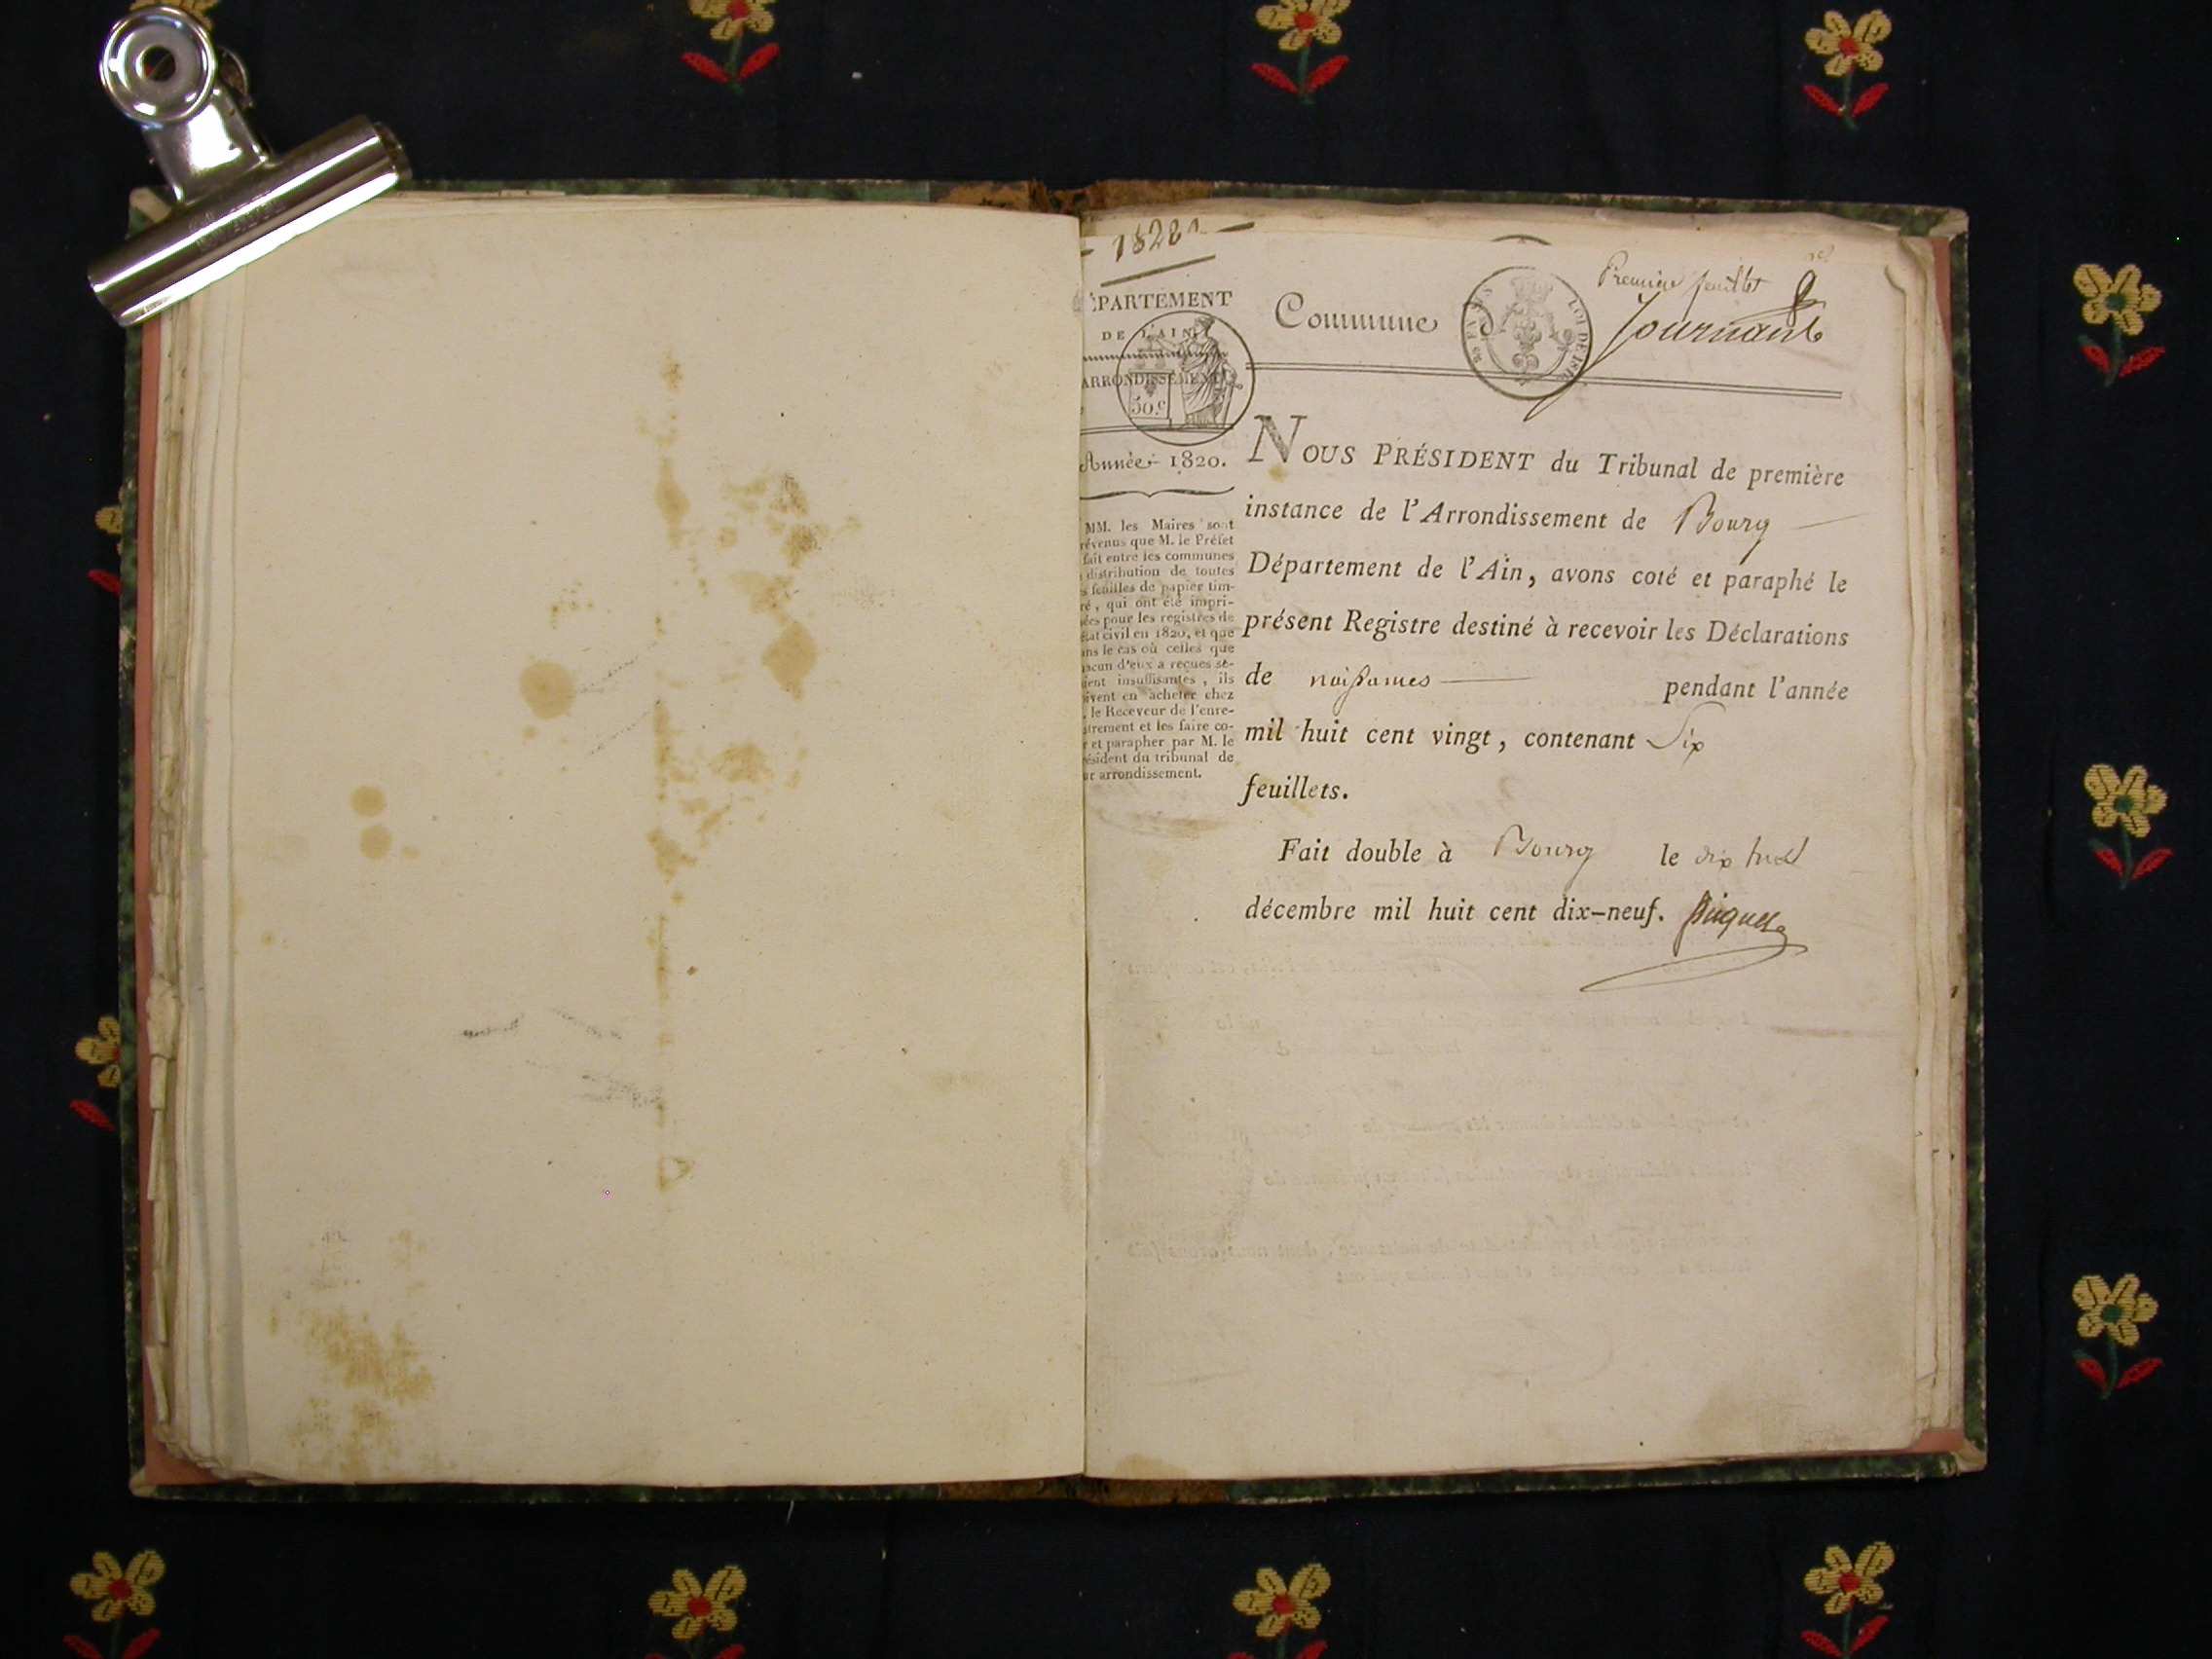 1820
ÉPARTEMENT
DE L'AIN
ARRONDISSEMENT
50.c
Année 1820.
MM. les Maires sont
révenus que M. le Préfet
fait entre les communes
distribution de toutes
s feuilles de papier tim-
ré, qui ont été impri-
ées pour les registres de
état civil en 1820, et que
ans le cas où celles que
acun d'eux a reçues se-
ient insuffisantes, ils
ivent en acheter chez
. le Receveur de l'enre-
strement et les faire co-
r et parapher par M. le
ésident du tribunal de
ur arrondissement.
Premier feuillet
Commune
LOI DE
Journans
NOUS PRÉSIDENT du Tribunal de première
instance de l'Arrondissement de Bourg
Département de l'Ain, avons coté et paraphé le
présent Registre destiné à recevoir les Déclarations
de naissances pendant l'année
mil huit cent vingt, contenant Six
feuillets.
Fait double à Bourg le dix huit
décembre mil huit cent dix-neuf.